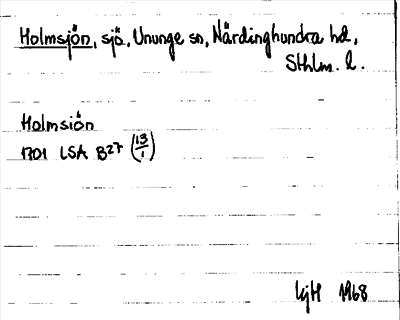 Holmsjön, sjö, Ununge sn, Närdinghundra hd,
Sthlm. l.
Holmsiön
1701 LSA B27 (13/1)
KjH 1968